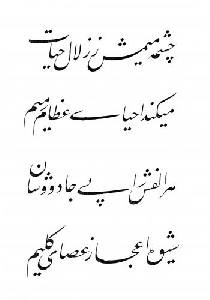 چشمه میمش ز زلال حیات
میکند احیاے عظام رمیم
هر الفش را پے جادووشان
اعجاز عصای کلیم